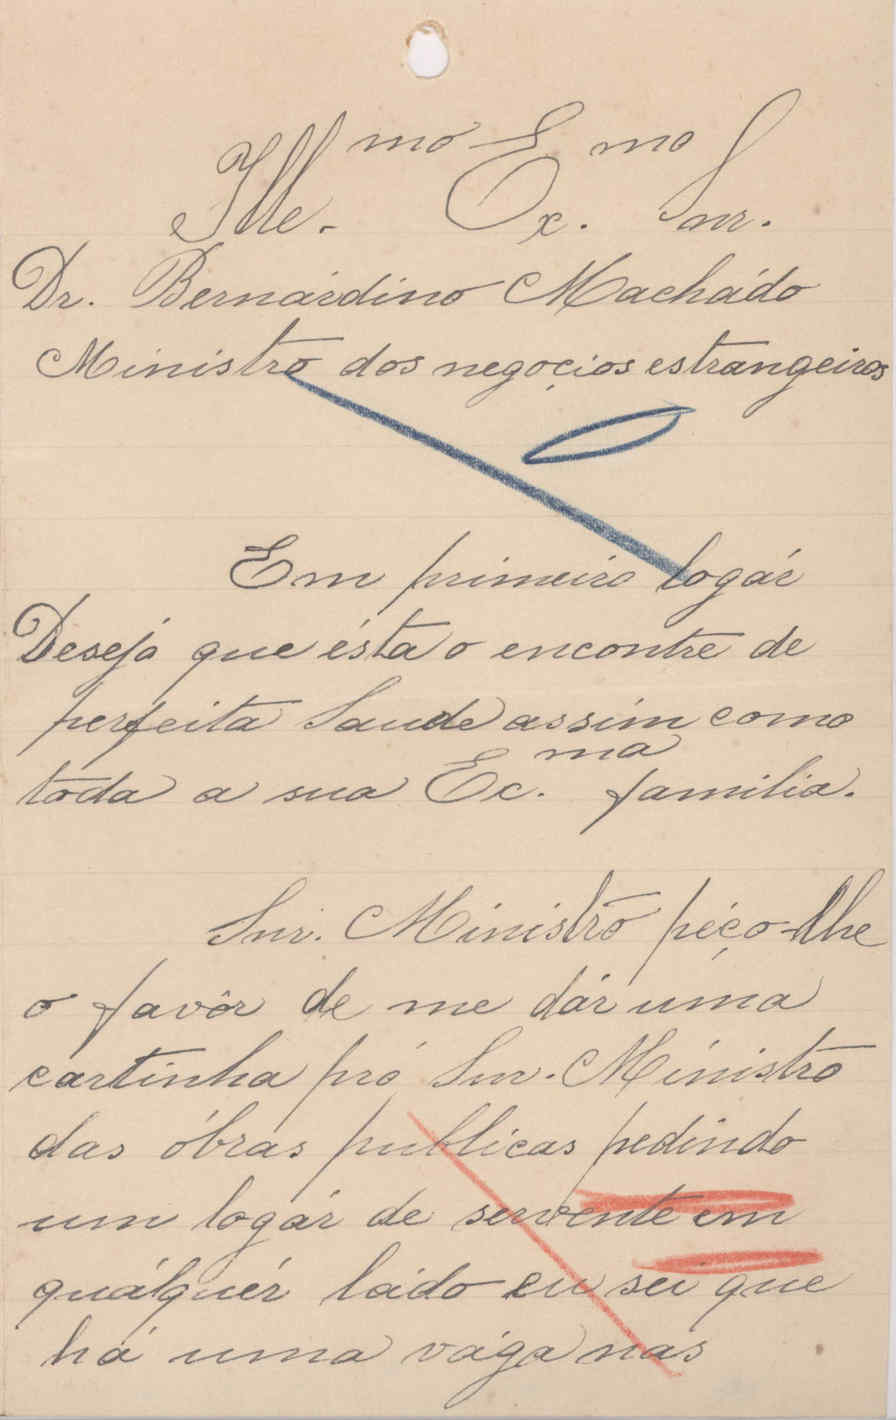 Ille.mo Ex.mo Snr.
Dr. Bernárdino Machádo
Ministro dos negoçios estrangeiros
Em primeiro logár
Desejo que ésta o encontre de
perfeita Saude assim como
toda a sua Ec.ma familia.
Snr. Ministro péço-lhe
o favôr de me dár uma
cartinha pró Snr. Ministro
das óbras publicas pedindo
um logár de servente em
quálquér ládo eu sei que
há uma vága nas